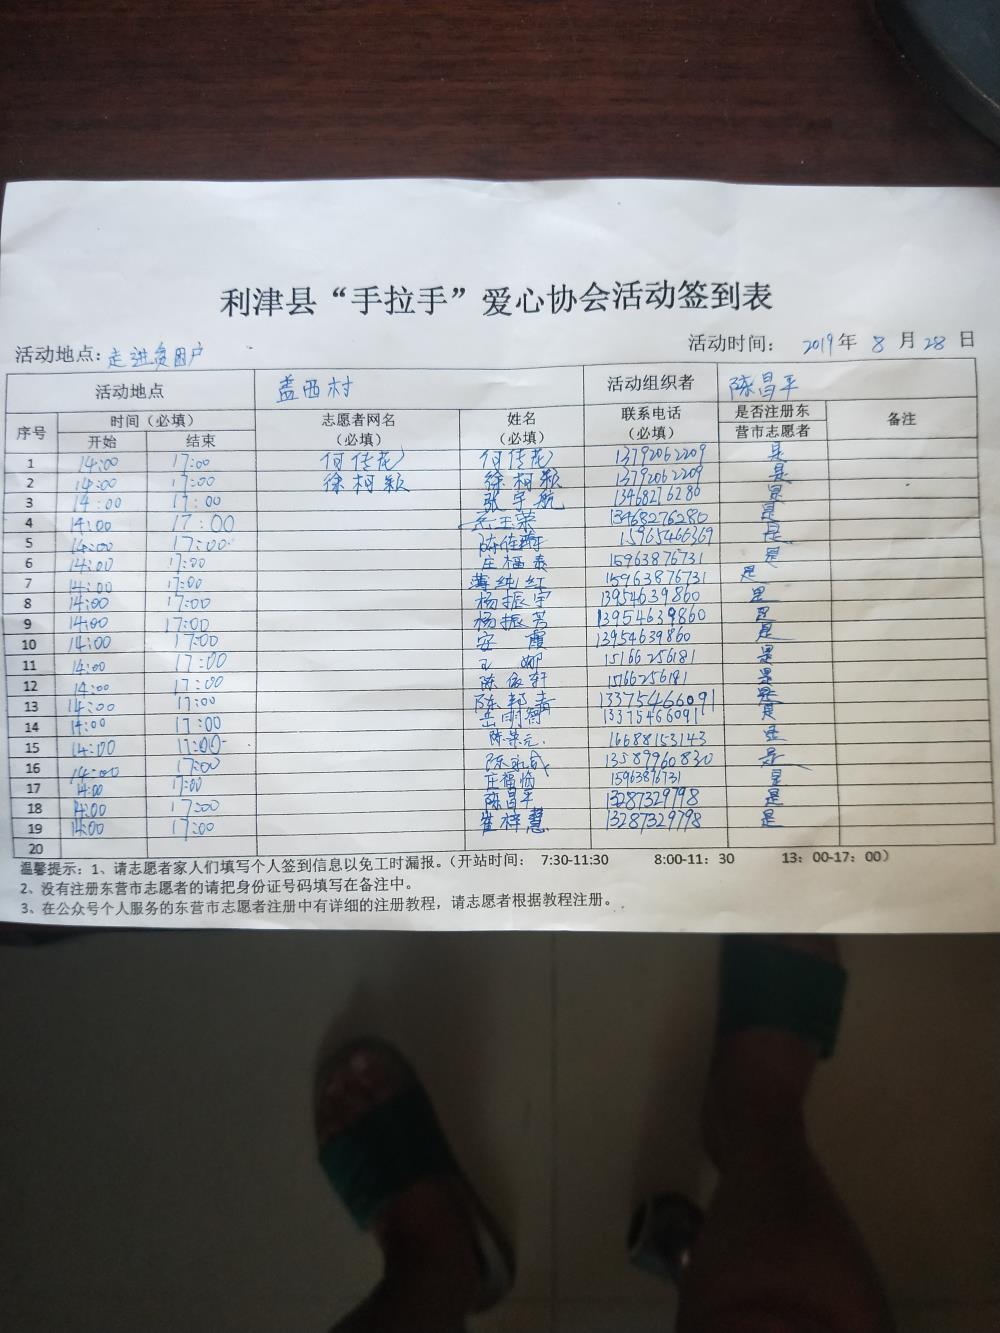 利津县“手拉手”爱心协会活动签到表
活动地点：走进贫困户 活动时间： 2019年 8 月 28 日
活动地点 盖西村 活动组织者 陈昌平
序号 时间（必填） 志愿者网名 姓名 联系电话 是否注册东 备注
开始 结束 （必填） （必填） （必填） 营市志愿者
1 14:00 17:00 何传花 何传花 13792062209 是
2 14:00 17:00 徐柯颖 徐柯颖 13792062209 是
3 14:00 17:00 张宇航 13468276280 是
4 14:00 17:00 岳玉荣 13468276280 是
5 14:00 17:00 陈佳 15965466369 是
6 14:00 17:00 庄福泰 15963876731 是
7 14:00 17:00 薄纯红 15963876731 是
8 14:00 17:00 杨振宇 13954639860 是
9 14:00 17:00 杨振芳 13954639860 是
10 14:00 17:00 安霞 13954639860 是
11 14:00 17:00 王娜 15166256181 是
12 14:00 17:00 陈俊轩 15166256181 是
13 14:00 17:00 陈 13375466091 是
14 14:00 17:00 岳明 13375466091 是
15 14:00 17:00 陈荣元 16688153143 是
16 14:00 17:00 陈 13589960830 是
17 14:00 17:00 庄福临 15963876731 是
18 14:00 17:00 陈昌平 13287329798 是
19 14:00 17:00 崔梓慧 13287329798 是
20
温馨提示：1、请志愿者家人们填写个人签到信息以免工时漏报。（开站时间： 7:30-11:30 8:00-11：30 13：00-17：00）
2、没有注册东营市志愿者的请把身份证号码填写在备注中。
3、在公众号个人服务的东营市志愿者注册中有详细的注册教程，请志愿者根据教程注册。